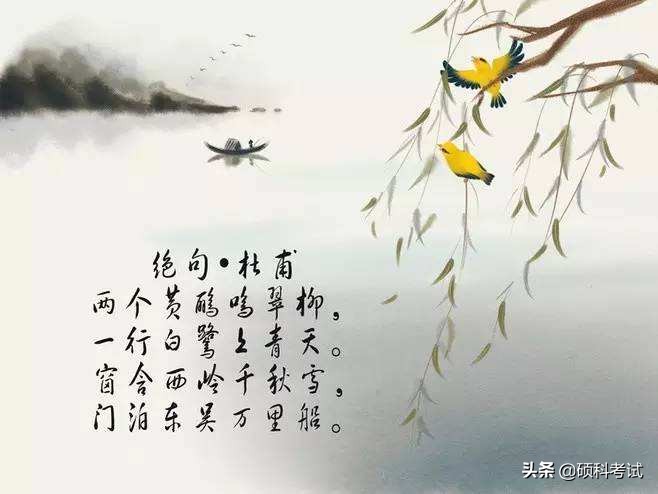 绝句•杜甫
两个黄鹂鸣翠柳，
一行白鹭上青天。
窗含西岭千秋雪，
门泊东吴万里船。
头条 @硕科考试